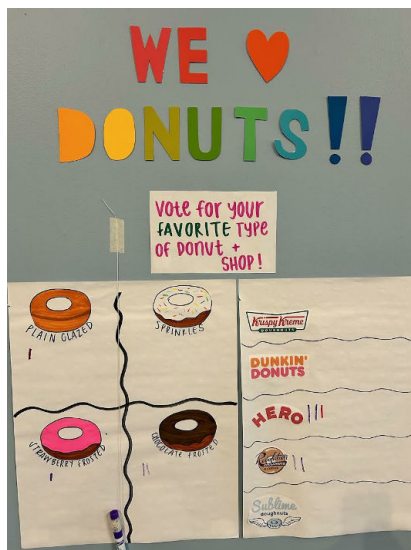 WE
DONUTS!!
VOTE FOR YOUR
FAVORITE TYPE
OF DONUT +
SHOP!
PLAIN GLAZED
SPRINKLES
STRAWBERRY FROSTED
CHOCOLATE FROSTED
Krispy Kreme
DOUGHNUTS
DUNKIN'
DONUTS
HERO
Revolution
Sublime
doughnuts